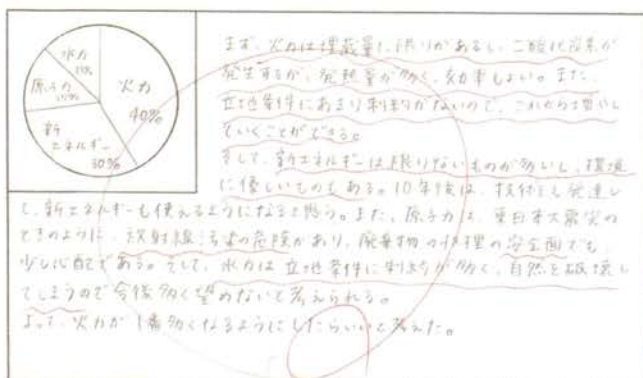 水力
15%
原子力
15%
新
エネルギー
30%
火力
40%
まず、火力は埋蔵量に限りがあるし、二酸化炭素が
発生するが、発熱量が多く、効率もよい。また、
立地条件にあまり制約がないので、これからも増やし
ていくことができる。
そして、新エネルギーは限りないものが多いし、環境
に優しいものもある。10年後は、技術も発達し
て、新エネルギーも使えるようになると思う。また、原子力は、東日本大震災の
ときのように、放射線汚染の危険があり、廃棄物の処理の安全面でも
少し心配である。そして、水力は立地条件に制約が多く、自然を破壊し
てしまうので今後多く望めないと考えられる。
よって、火力が1番多くなるようにしたらいいと考えた。